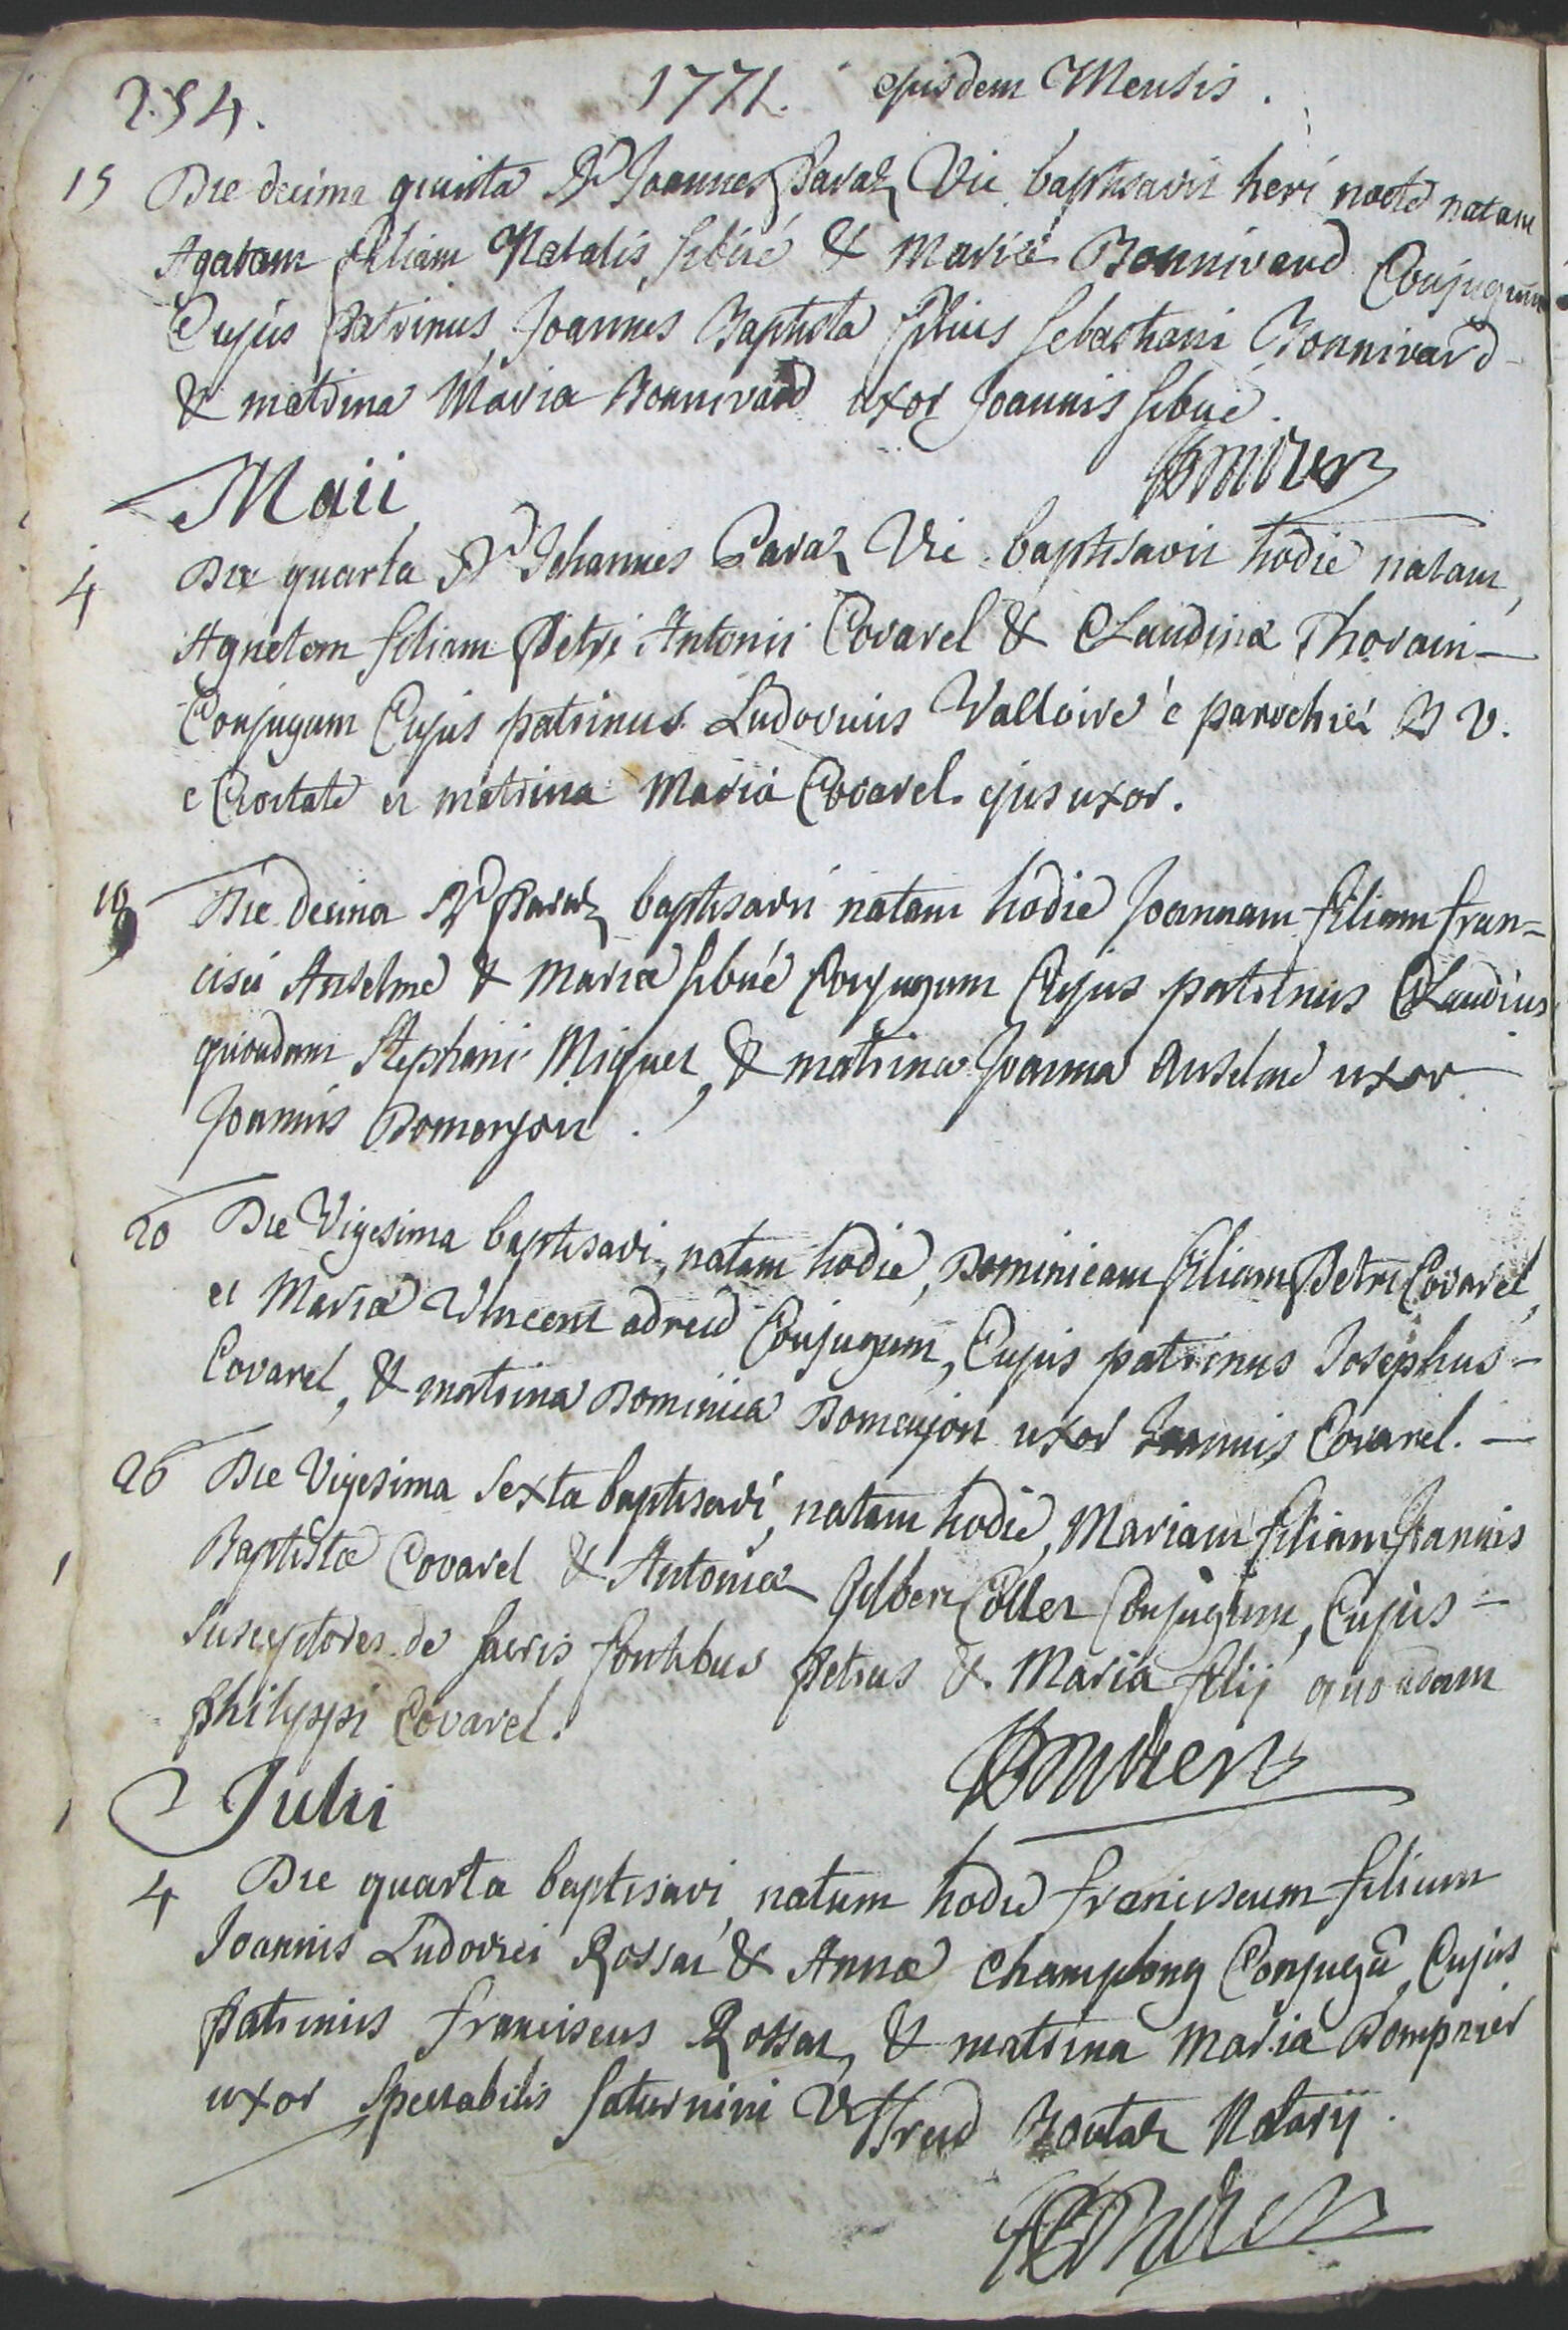 254. 1771. ejusdem Mensis.
15 Die decima quinta Rd Joannes Pavaz Vic baptisavit heri nocte natam
Agatam filiam Natalis sibué & Mariæ Bonnivard Conjugum
Cujus Patrinus, Joannes Baptista filius sebastiani Bonnivard
& matrina Maria Bonnivard uxor Joannis sibué.
Maii
4 Die quarta Rd Johannes Pavaz Vic baptisavit hodie natam,
Agnetem filiam Petri Antonii Covarel & Claudinæ Thovain
Conjugum Cujus patrinus Ludovicus Valloire é parochiæ B V.
e Civitate et matrina Maria Covarel ejus uxor.
10 Die decima Rd Pavaz baptisavit natam hodie Joannam filiam fran=
cisci Anselme & Mariæ sibué Conjugum Cujus patrinus Claudius
quondam Stephani Miguet, & matrina Joanna Anselme uxor
Joannis Domenjon.
20 Die Vigesima baptisavi, natam hodie, Dominicam filiam Petri Covarel,
et Mariæ Vincent adreud Conjugum, Cujus patrinus Josephus -
Covarel, & matrina Dominica Domenjon uxor Joannis Covarel.
26 Die Vigesima Sexta baptisavi, natam hodie, Mariam filiam Joannis
Baptistæ Covarel & Antoniæ Gilbert Collet Conjugum, Cujus =
Susceptores de sacris fontibus Petrus & Maria filij quondam
Philippi Covarel.
Julii
4 Die quarta baptisavi, natum hodie franciscum filium
Joannis Ludovici Rossat & Annæ Champlong Conjugũ, Cujus
Patrinus franciscus Rossat, & matrina Maria Dompnier
uxor Spectabilis Saturnini Boutaz Notarij.